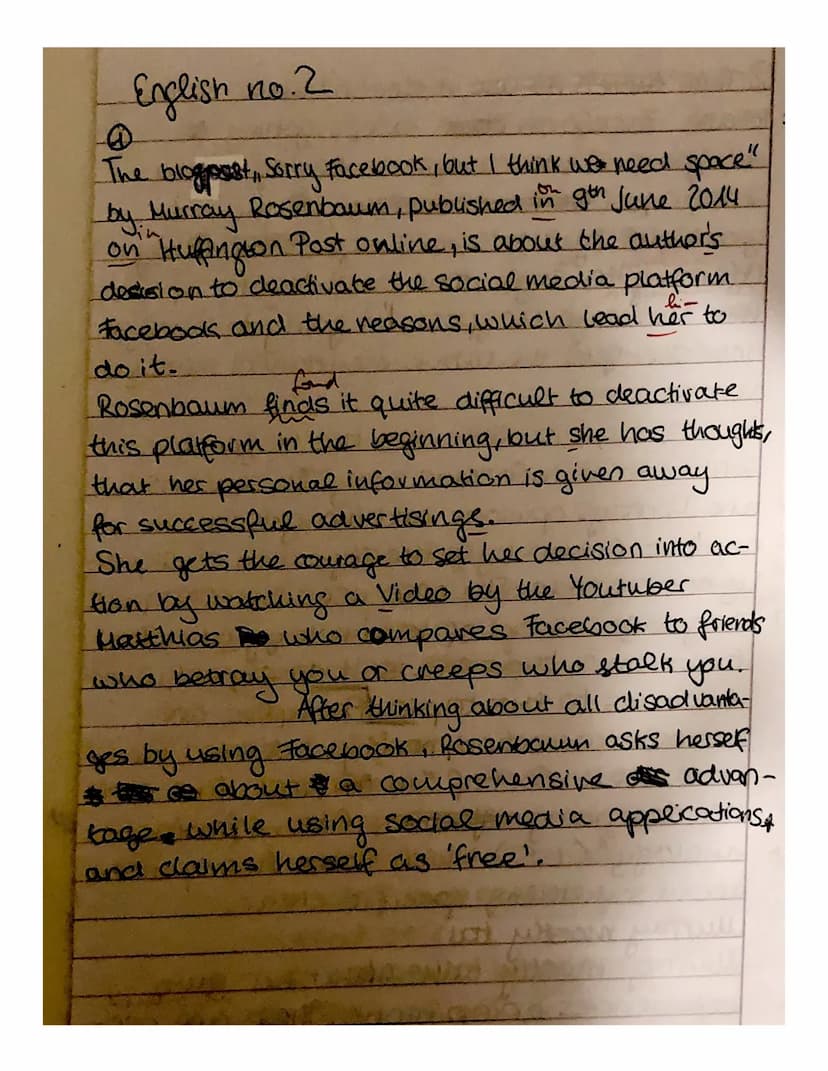 English no. 2
①
The blogpost „Sorry Facebook, but I think we need space"
on
by Murray Rosenbaum, published in 9th June 2014
in
on Huffington Post online, is about the author's
decision to deactivate the social media platform
hi-
Facebook and the reasons, which lead her to
do it.
found
Rosenbaum finds it quite difficult to deactivate
this platform in the beginning, but she has thoughts,
that her personal information is given away
for successful advertisings.
She gets the courage to set her decision into ac-
tion by watching a Video by the Youtuber
Matthias who compares Facebook to friends
who betray you or creeps who stalk you.
After thinking about all disadvanta-
ges by using Facebook, Rosenbaum asks herself
about a comprehensive advan-
tage while using social media applications,
and claims herself as 'free'.